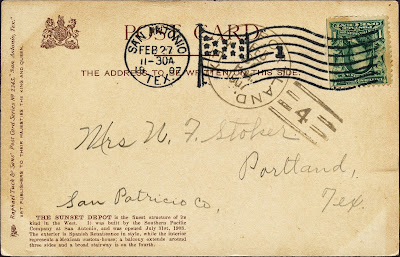 POST CARD
SAN ANTONIO
FEB 27
11-30A
TEX.
1
THE ADDRESS TO BE WRITTEN ON THIS SIDE.
4
Mrs W. F. Stolser
Portland,
San Patricio Co,
Tex.
THE SUNSET DEPOT is the finest structure of its
kind in the West. It was built by the Southern Pacific
Company at San Antonio, and was opened July 31st, 1903.
The exterior is Spanish Renaissance in style, while the interior
represents a Mexican mission-house; a balcony extends around
three sides and a broad stairway is on the fourth.
Raphael Tuck & Sons' Post Card Series No 2343, "San Antonio, Tex."
ART PUBLISHERS TO THEIR MAJESTIES THE KING AND QUEEN.